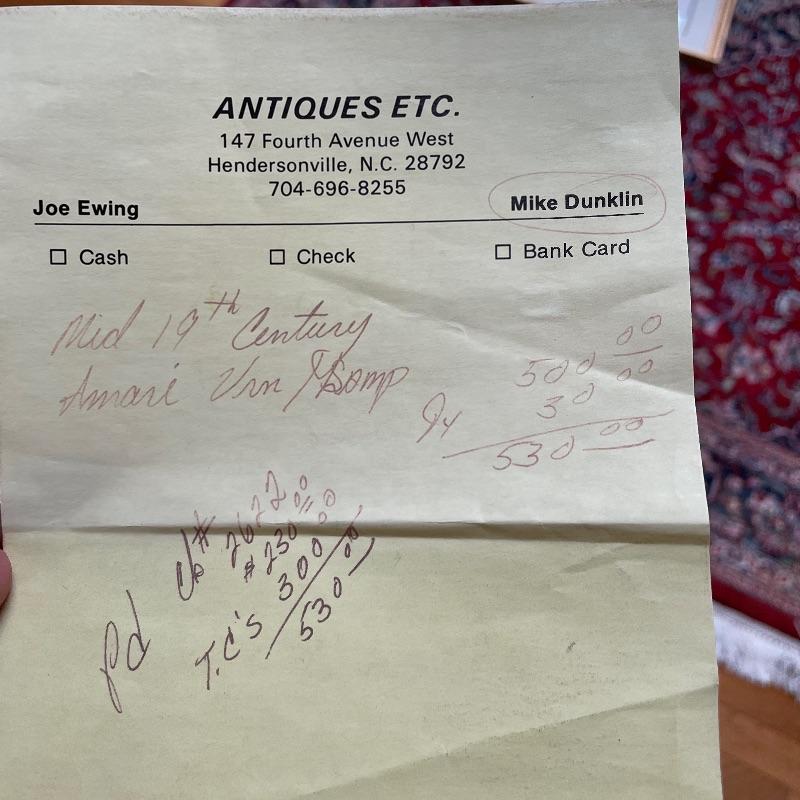 ANTIQUES ETC.
147 Fourth Avenue West
Hendersonville, N.C. 28792
704-696-8255
Joe Ewing
Mike Dunklin
☐ Cash ☐ Check ☐ Bank Card
Mid 19th Century
Amari Urn
500 00
30 00
530 00
pd ck# 2622
$230 00
T.C's 300 00
530 00